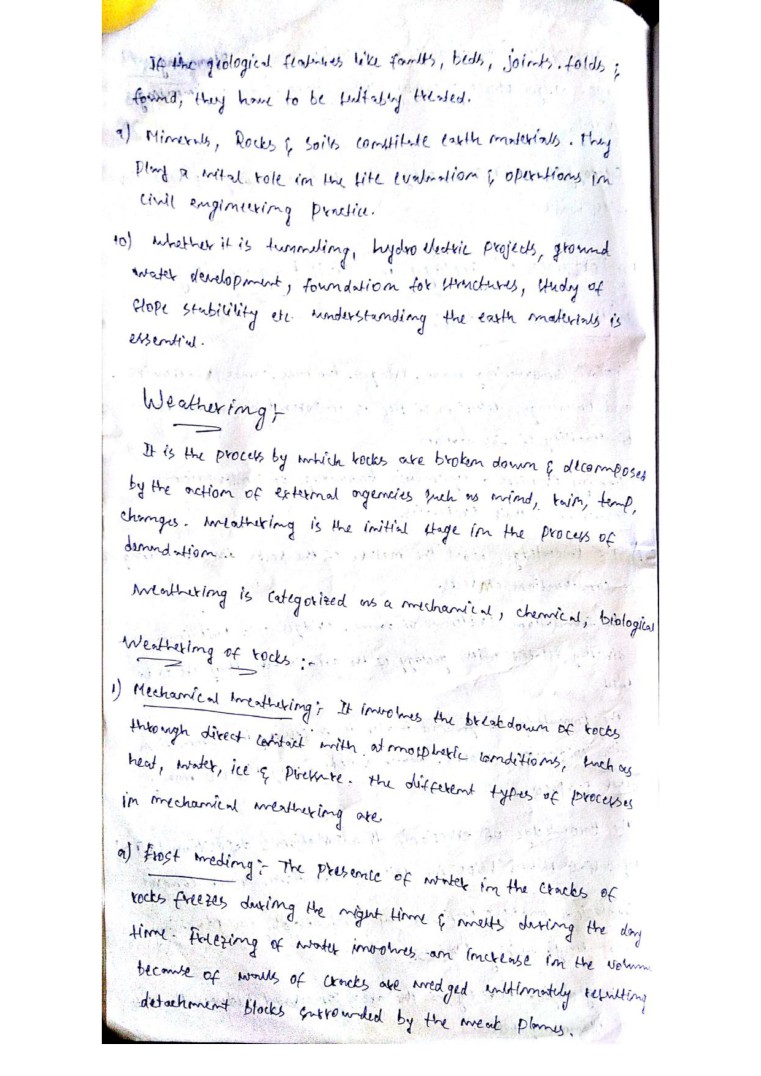 If the geological features like faults, beds, joints, folds &
found, they have to be suitably treated.
9) Minerals, Rocks & soils constitute earth materials. They
play a vital role in the site evaluation & operations in
civil engineering practice.
10) whether it is tunneling, hydro electric projects, ground
water development, foundation for structures, study of
slope stabilility etc. understanding the earth materials is
essential.
Weathering:-
It is the process by which rocks are broken down & decomposes
by the action of external agencies such as wind, rain, temp,
changes. weathering is the initial stage in the process of
denundation.
weathering is categorized as a mechanical, chemical, biological
Weathering of rocks :-
1) Mechanical weathering:- It involves the breakdown of rocks
through direct contact with atmospheric conditions, such as
heat, water, ice & pressure. the different types of processes
in mechanical weathering are,
a) Frost weding:- The presence of water in the cracks of
rocks freezes during the night time & melts during the day
time. Freezing of water involves an increase in the volum
because of walls of cracks are wedged ultimately resulting
detachment blocks surrounded by the weak planes.